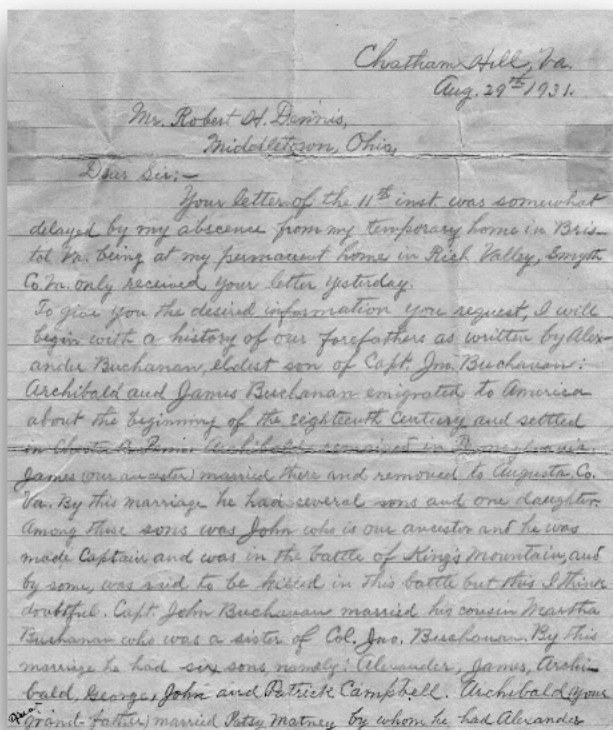 Chatham Hill, Va.
Aug. 29th 1931.
Mr. Robert H. Dennis,
Middletown, Ohio,
Dear Sir:-
Your letter of the 11th inst. was somewhat
delayed by my abscence from my temporary home in Bris-
tol Va. being at my permanent home in Rich Valley, Smyth
Co. Va. only received your letter yesterday.
To give you the desired information you request, I will
begin with a history of our forefathers as written by Alex-
ander Buchanan, eldest son of Capt. Jno. Buchanan:
Archibald and James Buchanan emigrated to America
about the beginning of the Eighteenth Century and settled
in Archibald remained in Pennsylvania.
James (our ancester) married there and removed to Augusta Co.
Va. By this marriage he had several sons and one daughter.
Among these sons was John who is our ancestor and he was
made Captain and was in the battle of King's Mountain, and
by some, was said to be killed in this battle but this I think
doubtful. Capt. John Buchanan married his cousin Martha
Buchanan who was a sister of Col. Jno. Buchanan. By this
marriage he had six sons namely: Alexander, James, Archi-
bald, George, John and Patrick Campbell. Archibald (your
great
grand-father) married Patsy Matney by whom he had Alexander